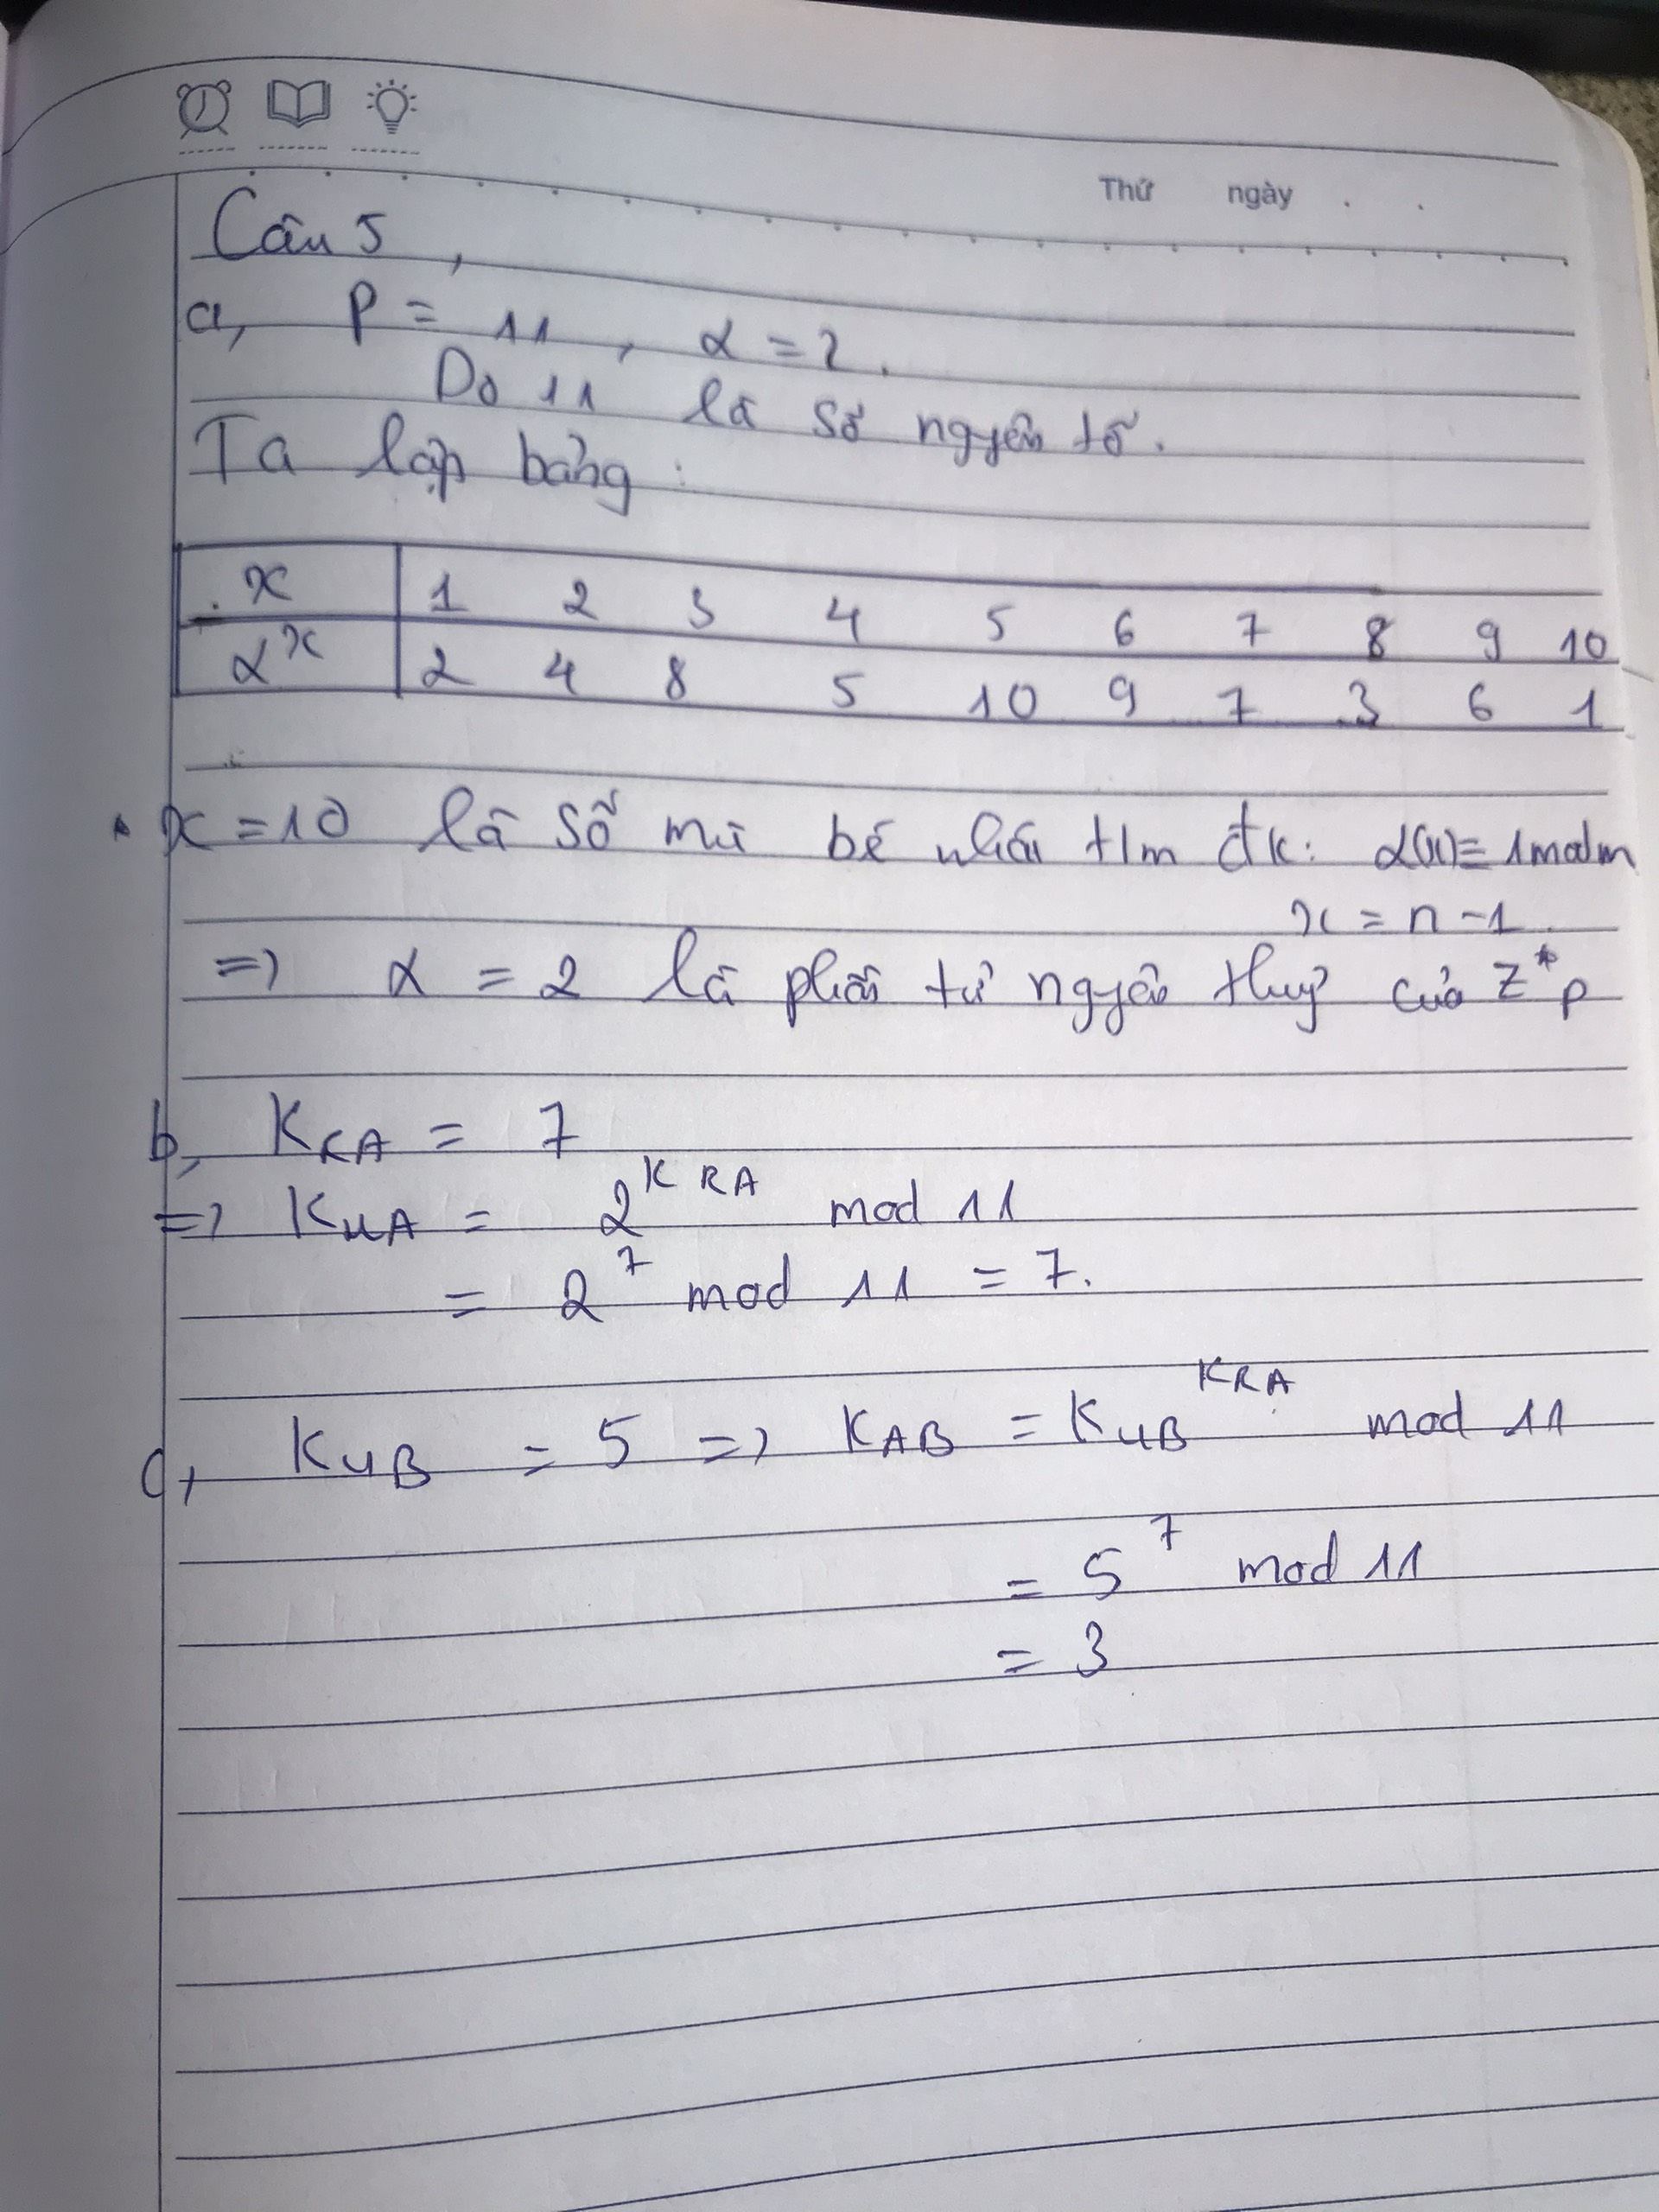 Thứ ngày . .
Câu 5,
a, P = 11, α = 2.
Do 11 là số nguyên tố.
Ta lập bảng:
x 1 2 3 4 5 6 7 8 9 10
α^x 2 4 8 5 10 9 7 3 6 1
x = 10 là số mũ bé nhất t/m đk: α(x) ≡ 1 mod m
x = n - 1
=> α = 2 là phần tử nguyên thuỷ của Z*p
b, K_RA = 7
=> K_UA = 2^K_RA mod 11
= 2^7 mod 11 = 7.
c, K_UB = 5 => K_AB = K_UB^K_RA mod 11
= 5^7 mod 11
= 3